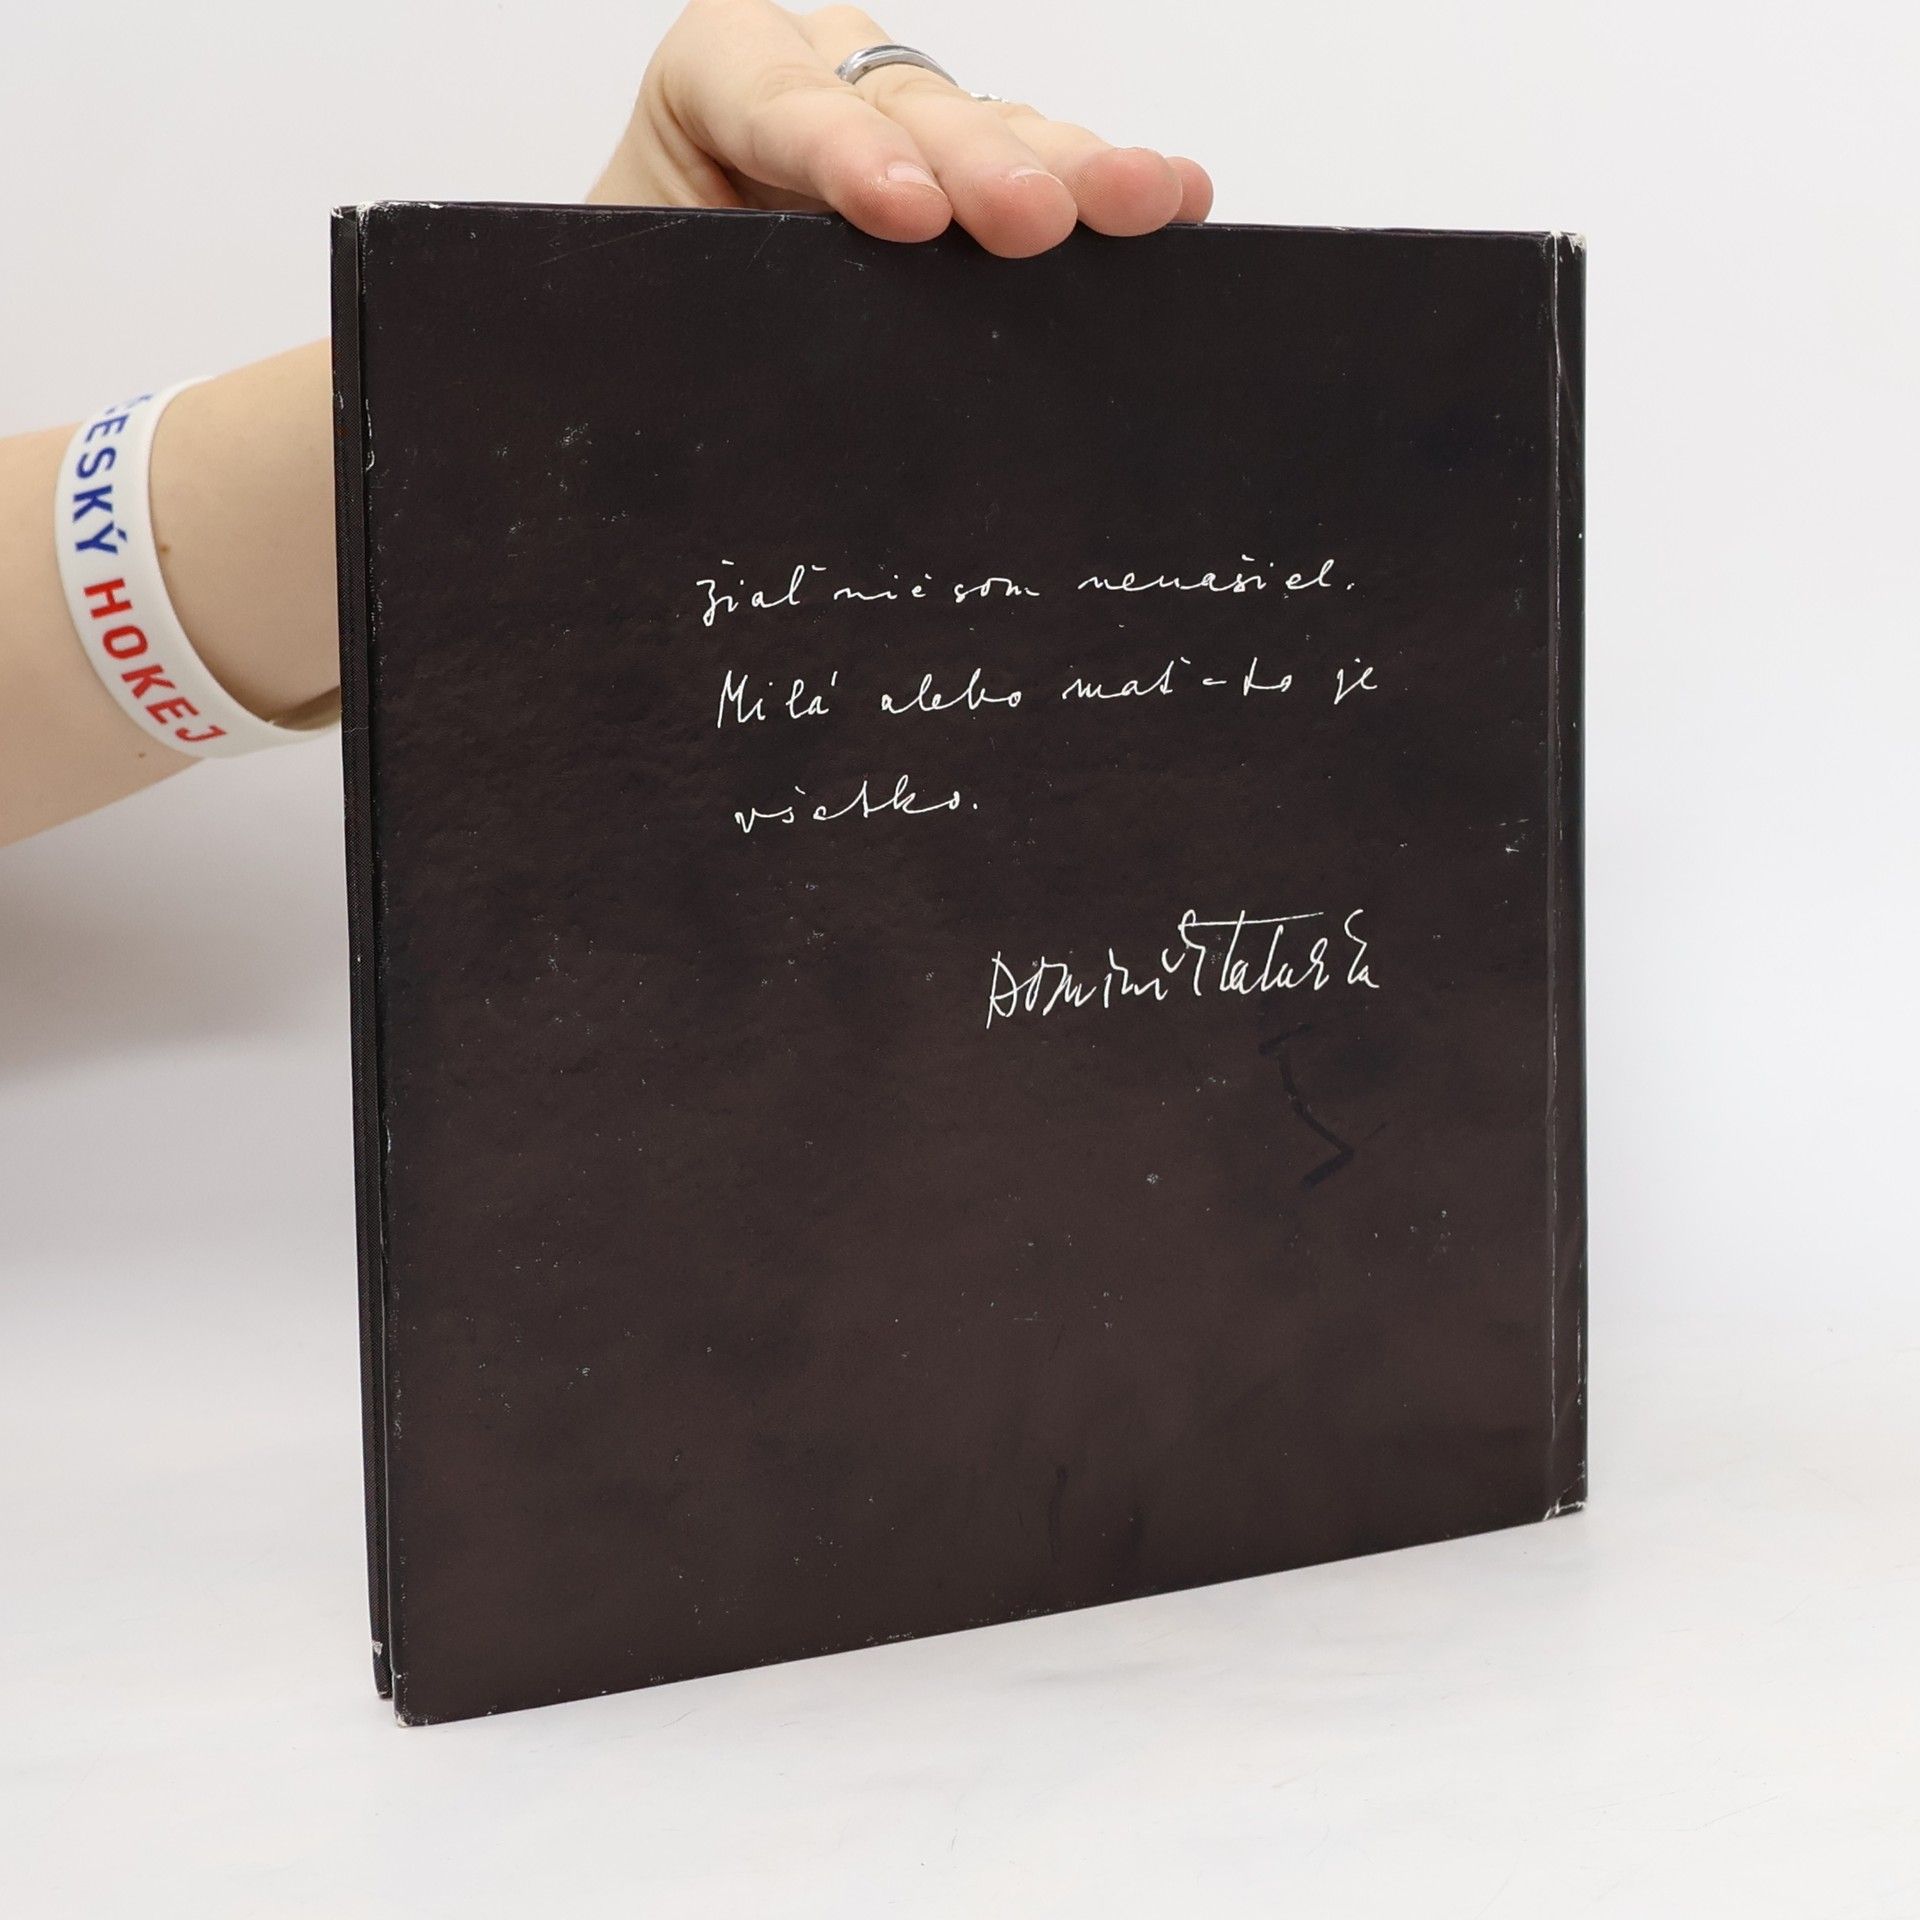 ČESKÝ HOKEJ
žiaľ nič som nenašiel.
Milá alebo mať - to je
všetko.
Dominik Tatarka